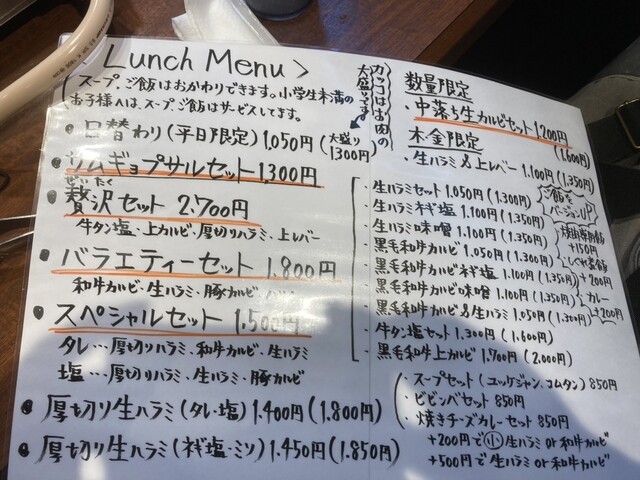 Lunch Menu >
スープ、ご飯はおかわりできます。小学生未満の
お子様へは、スープご飯はサービスしてます。
カッコはお肉の
大盛りです
・日替わり(平日限定)1,050円(大盛り
1300円)
・サムギョプサルセット1,300円
ぜいたく
・贅沢セット 2,700円
牛タン塩・上カルビ・厚切りハラミ・上レバー
・バラエティーセット 1,800円
和牛カルビ・生ハラミ・豚カルビ
・スペシャルセット 1,500円
タレ…厚切りハラミ、和牛カルビ、生ハラミ
塩…厚切りハラミ、生ハラミ・豚カルビ
・厚切り生ハラミ(タレ・塩)1,400円(1,800円)
・厚切り生ハラミ(ネギ塩・ミソ)1,450円(1,850円)
数量限定
・中落ち生カルビセット1,200円
(1,600円)
木金限定
・生ハラミ&上レバー 1,100円(1,350円)
・生ハラミセット 1,050円(1,300円)
・生ハラミネギ塩 1,100円(1,350円)
・生ハラミ味噌 1,100円(1,350円)
・黒毛和牛カルビ 1,050円(1,300円)
・黒毛和牛カルビネギ塩 1,100円(1,350円)
・黒毛和牛カルビ味噌 1,100円(1,350円)
・黒毛和牛カルビ&生ハラミ 1,050円(1,300円)
・牛タン塩セット 1,300円(1,600円)
・黒毛和牛上カルビ 1,700円(2,000円)
ご飯を
バージョンUP
+150円
+200円
カレー
+200円
・スープセット(ユッケジャン、コムタン)850円
・ビビンバセット 850円
・焼きチーズカレーセット 850円
+200円で小生ハラミor和牛カルビ
+500円で生ハラミor和牛カルビ